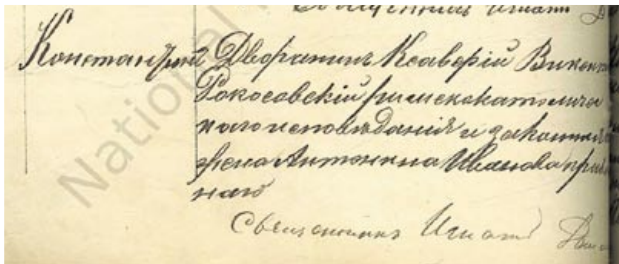 Священникъ Игнатій
Константинъ Дворянинъ Ксаверій Викен
Рокосовскій римскокатоличес
каго исповѣданія и законная
жена Антонина Иванова пра
наго
Священникъ Игнатій
National